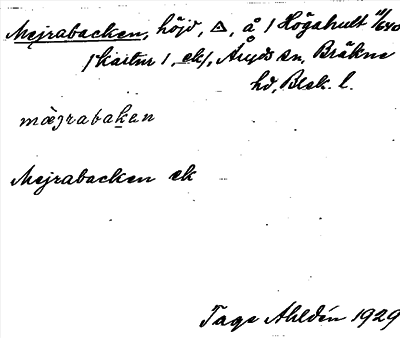 Mejrabacken, höjd, △, å / Högahult 11/640
/ kaitur /, ek/, Åryds sn, Bräkne
hd, Blek. l.
mæjrabaken
Mejrabacken ek
Tage Ahldén 1929